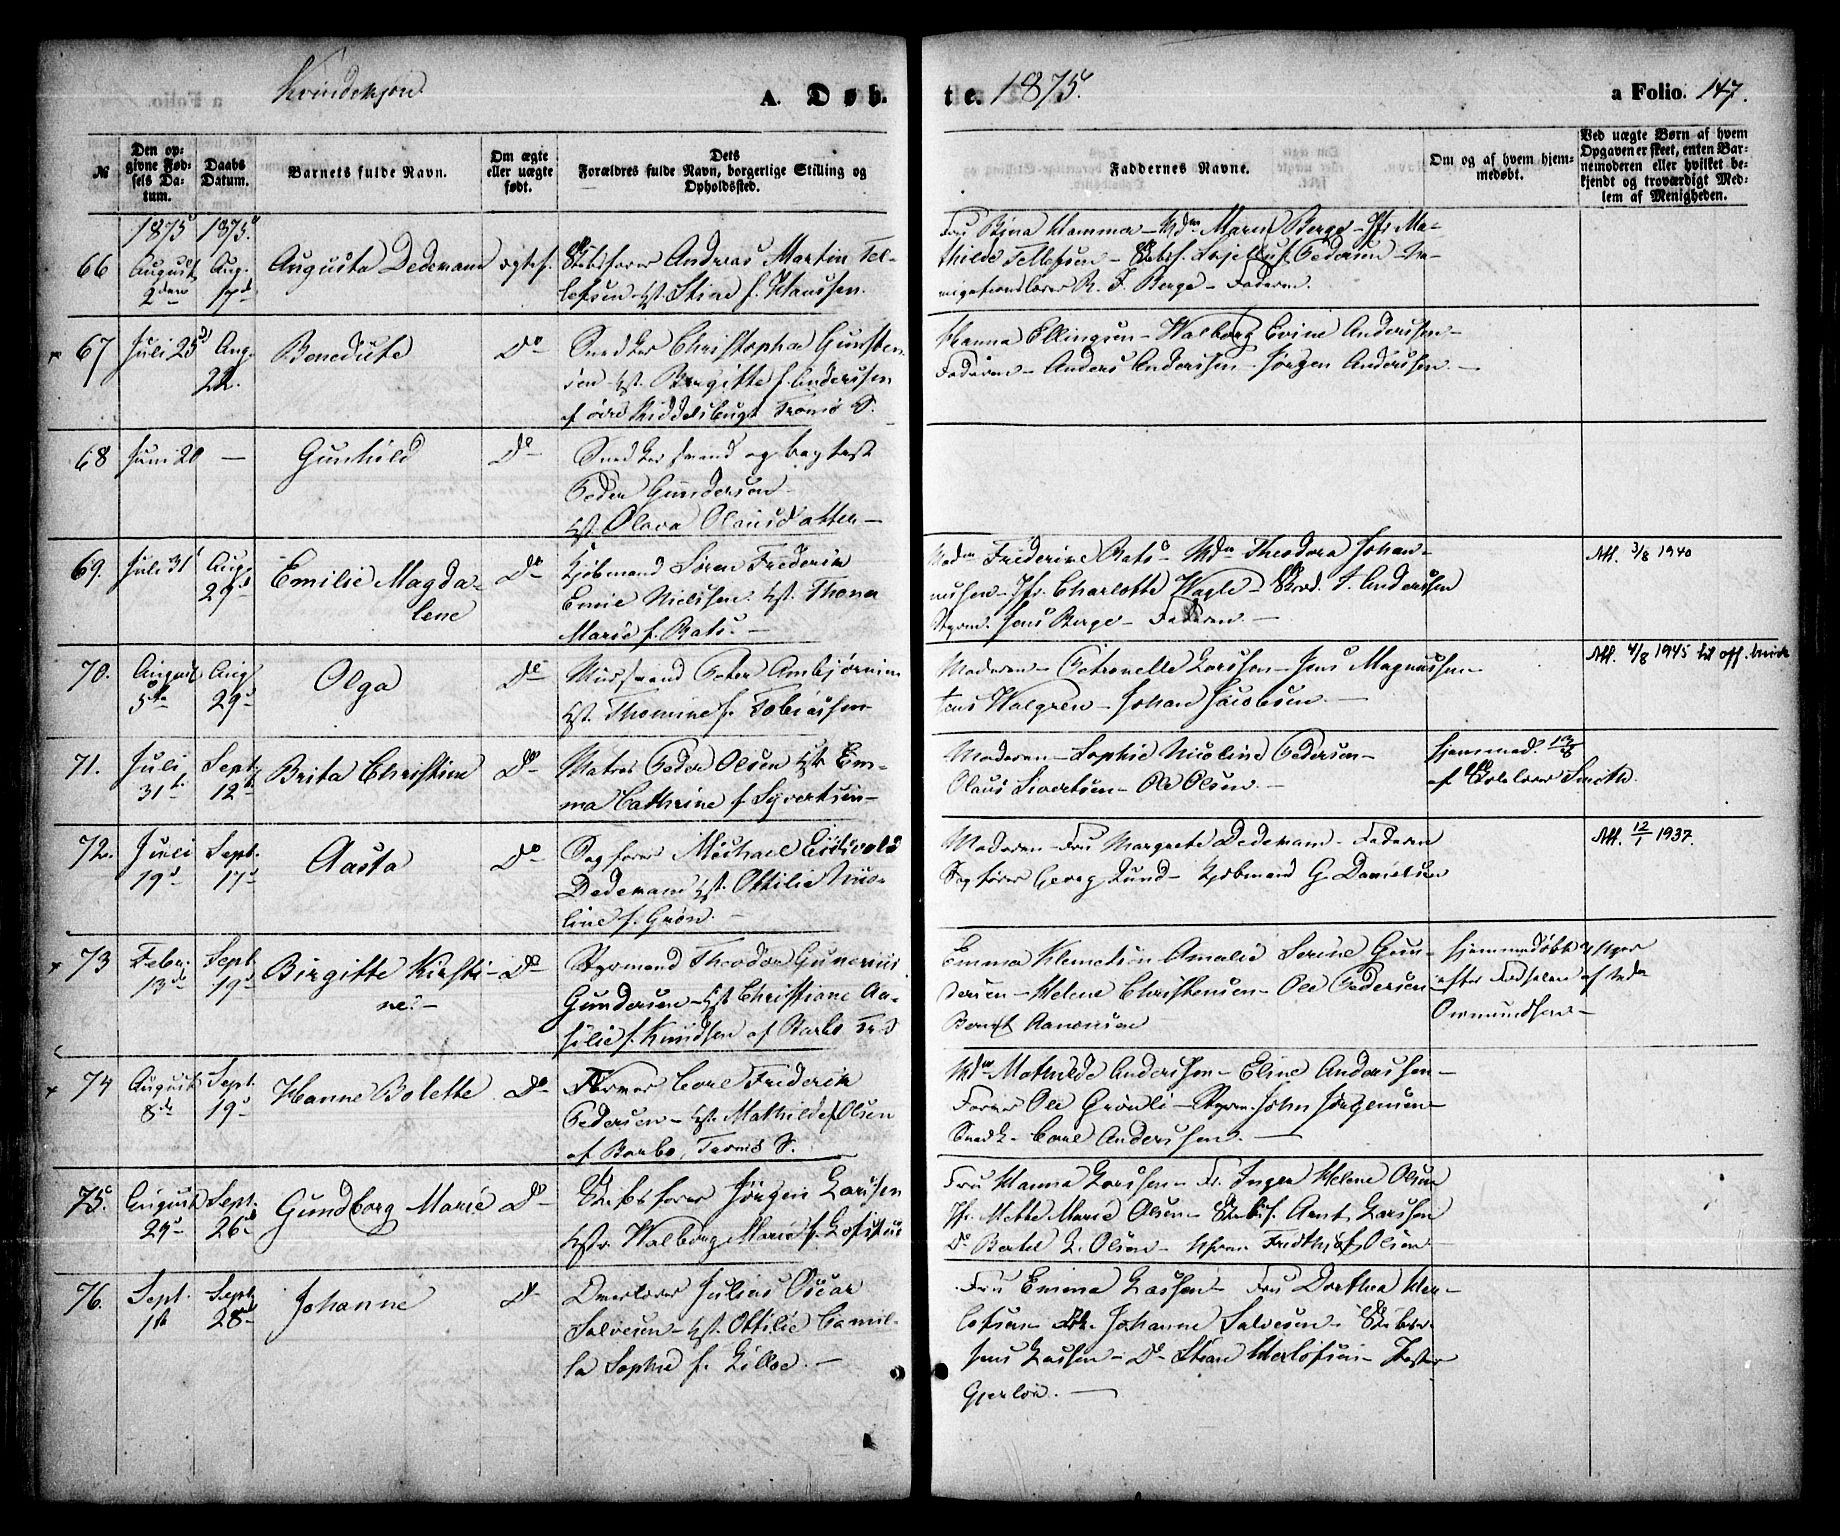 Kvindekjøn
A. Døb-
te. 1875.
a Folio. 147.
№
Den op-
givne Fød-
sels Da-
tum.
Daabs
Datum.
Barnets fulde Navn.
Om ægte
eller uægte
født.
Dets
Forældres fulde Navn, borgerlige Stilling og
Opholdssted.
Faddernes Navne.
Om og af hvem hjem-
medøbt.
Ved uægte Børn af hvem
Opgaven er skeet, enten Bar-
nemoderen eller hvilket be-
kjendt og troværdigt Med-
lem af Menigheden.
1875 1875.
66 August 2den Aug. 17de Augusta Dedekam ægtef.
Skibsfører Andreas Martin Tel-
lefsen Hst. Stine f. Hanssen.
Fru Bina Hammer - Mdm Maren Berge - Jfr. Ma-
thilde Tellefsen - Skibsf. Pedersen - Na-
vigationslærer R. J. Berge - Faderen.
67 Juli 25d Aug. 22. Benedicte Do
Snedker Christopher Gunsten-
sen - Hst. Birgitte f. Anderssen
af Tromø S.
Hanna Ellingsen - Walborg Evine Anderssen -
Faderen - Anders Anderssen - Jørgen Anderssen. -
68 Juni 20 - Gunhild Do
Peder Gundersen -
Hst. Olava Olausdatter -
69. Juli 31 Aug. 29d Emilie Magda-
lene Do
Kjøbmand Søren Frederik
Emil Nielsen. Hst. Thona
Marie f. Bats. -
Mdm Frederike Bats - Mdm Theodora Johan-
nessen - Jfr. Charlotte Wagle - Skrd. T. Anderssen
Styrm. Jens Berge - Faderen -
Att. 3/8 1940
70. August 5te Aug 29d Olga Do
Peter Ambjørnsen
Hst. Thomine f. Tobiassen
Moderen - Petronelle Larssen - Jens Magnussen -
Jens Walgren - Johan Jacobsen. -
Att. 4/8 1945 til off. bruk
71. Juli 31t. Sept. 12te Brita Christine Do
Matros Peder Olsen Hst. Em-
ma Cathrine f. Syvertsen -
Moderen - Sophie Nicoline Pedersen -
Olaus Sivertsen - Ole Olsen. -
hjemmed. 13/8
af Smith.
72. Juli 19d Sept. 17d Aasta Do
Sagfører Michael Eidsvold
Dedekam Hst. Ottilie Nico-
line f. Grøn. -
Moderen - Fru Margrete Dedekam - Faderen
Sagfører Georg Lund - Kjøbmand G. Danielsen
Att. 12/1 1937.
73 Febr. 13de Sept 19d Birgitte Kirsti-
ne. - Do
Styrmand Theodor Gunerius
Gundersen - Hst Christiane Aa-
silie f. Knudsen af Barbo Tr. S
Emma Klemetsen Amalie Serine Gun-
dersen - Helene Christensen - Ole Pedersen
Bernt Aanonsen
hjemmedøbt
efter Fødselen af
Osmundsen -
74 August 8de Sept. 19d Hanne Bolette Do
Carl Frederik
Pedersen - Hst. Mathilde f. Olsen
af Barbo, Tromø S.
Mdm Mathilde Anderssen - Eline Anderssen -
Ole Grønli - Styrm. John Jørgensen -
Snedk. Carl Anderssen. -
75. August 29d Sept. 26d Gundborg Marie Do
Skibsfører Jørgen Larssen
Hst. Walborg Marie f. Lofthus
Fru Hanna Larssen - Fr. Inger Helene Olsen
Jfr. Mette Marie Olsen - Skibsf. Arnt Larssen
Do Bertel L. Olsen - Fridthjof Olsen
76. Sept. 1te Sept 28d Johanne Do
Overlærer Julius Oscar
Salvesen - Hst. Ottilie Camil-
la Sophie f. Lilloe. -
Fru Emma Lassen - Fru Dorthea Her-
lofsen - Frk. Johanne Salvesen - Skibsr.
Jens Lassen - Do Stian Herlofsen -
Gjerløv. -